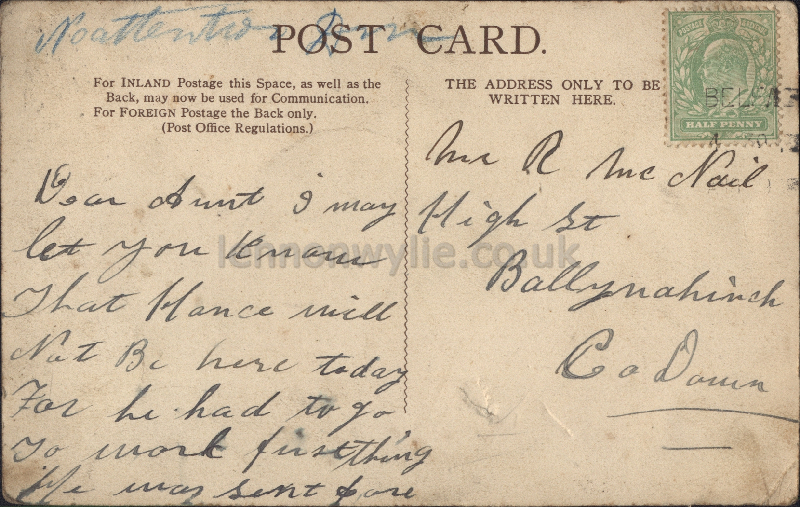 No attention
POST CARD.
For INLAND Postage this Space, as well as the
Back, may now be used for Communication.
For FOREIGN Postage the Back only.
(Post Office Regulations.)
THE ADDRESS ONLY TO BE
WRITTEN HERE.
POSTAGE
HALF PENNY
BELFA
Mr R Mc Nail
High St
Ballynahinch
Co Down
Dear Aunt I may
let you Know
That Hance will
Not Be here today
For he had to go
To work first thing
He was sent fore
lennonwylie.co.uk